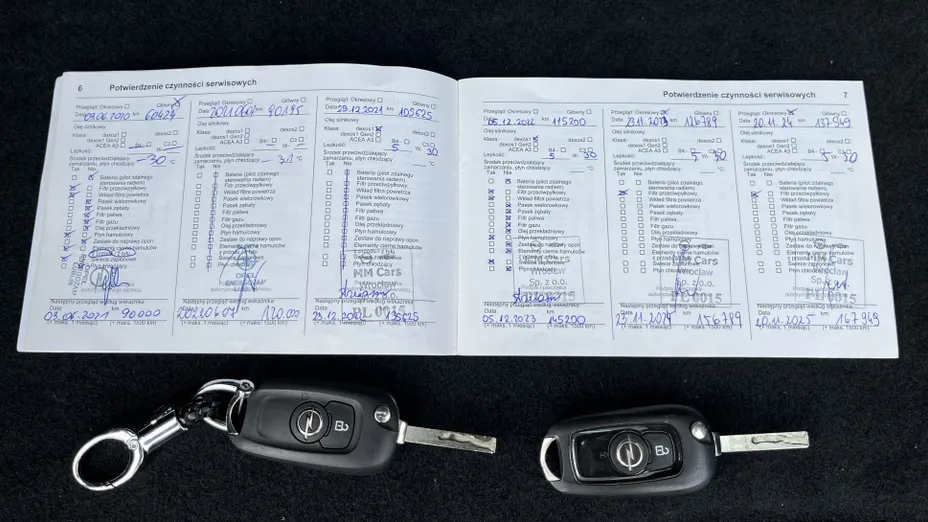 6 Potwierdzenie czynności serwisowych
Przegląd: Okresowy Główny
Data 09.06.2020 km 60424
Olej silnikowy
Klasa: dexos1 dexos2
dexos1 Gen2
ACEA A3 B4 C3
Lepkość: W-
Środek przeciwdziałający
zamarzaniu, płyn chłodzący -30 °C
Tak Nie
Bateria (pilot zdalnego
sterowania radiem)
Filtr przeciwpyłkowy
Wkład filtra powietrza
Pasek wielorowkowy
Pasek zębaty
Filtr paliwa
Filtr gazu
Olej przekładniowy
Płyn hamulcowy
Zestaw do naprawy opon
Elementy cierne hamulców
Świece zapłonowe
Następny przegląd według wskaźnika
03.06.2021 km 90000
(+ maks. 1 miesiąc) (+ maks. 1500 km)
Przegląd: Okresowy Główny
Data km 90195
Olej silnikowy
Klasa: dexos1 dexos2
dexos1 Gen2
ACEA A3 B4 C3
Lepkość: W-
Środek przeciwdziałający
zamarzaniu, płyn chłodzący 31 °C
Tak Nie
Bateria (pilot zdalnego
sterowania radiem)
Filtr przeciwpyłkowy
Wkład filtra powietrza
Pasek wielorowkowy
Pasek zębaty
Filtr paliwa
Filtr gazu
Olej przekładniowy
Płyn hamulcowy
Zestaw do naprawy opon
Elementy cierne hamulców
Świece zapłonowe
Płyn chłodzący
OPEL
Następny przegląd według wskaźnika
20220607 km 120.000
(+ maks. 1 miesiąc) (+ maks. 1500 km)
Przegląd: Okresowy Główny
Data 29.12.2021 km 105625
Olej silnikowy
Klasa: dexos1 dexos2
dexos1 Gen2
ACEA A3 B4 C3
Lepkość: 5 W- 30
Środek przeciwdziałający
zamarzaniu, płyn chłodzący °C
Tak Nie
Bateria (pilot zdalnego
sterowania radiem)
Filtr przeciwpyłkowy
Wkład filtra powietrza
Pasek wielorowkowy
Pasek zębaty
Filtr paliwa
Filtr gazu
Olej przekładniowy
Płyn hamulcowy
Zestaw do naprawy opon
Elementy cierne hamulców
Świece zapłonowe
Płyn chłodzący
MM Cars
Wrocław
PL 0015
Następny przegląd według wskaźnika
km 135625
(+ maks. 1 miesiąc) (+ maks. 1500 km)
Potwierdzenie czynności serwisowych 7
Przegląd: Okresowy Główny
Data 05.12.2022 km 115200
Olej silnikowy
Klasa: dexos1 dexos2
dexos1 Gen2
ACEA A3 B4 C3
Lepkość: 5 W- 30
Środek przeciwdziałający
zamarzaniu, płyn chłodzący °C
Tak Nie
Bateria (pilot zdalnego
sterowania radiem)
Filtr przeciwpyłkowy
Wkład filtra powietrza
Pasek wielorowkowy
Pasek zębaty
Filtr paliwa
Filtr gazu
Olej przekładniowy
Płyn hamulcowy
Zestaw do naprawy opon
Elementy cierne hamulców
Świece zapłonowe
Płyn chłodzący
MM Cars
Wrocław
Sp. z o.o.
PL 0015
Następny przegląd według wskaźnika
05.12.2023 km 145200
(+ maks. 1 miesiąc) (+ maks. 1500 km)
Przegląd: Okresowy Główny
Data 23.11.2023 km 126789
Olej silnikowy
Klasa: dexos1 dexos2
dexos1 Gen2
ACEA A3 B4 C3
Lepkość: 5 W- 30
Środek przeciwdziałający
zamarzaniu, płyn chłodzący °C
Tak Nie
Bateria (pilot zdalnego
sterowania radiem)
Filtr przeciwpyłkowy
Wkład filtra powietrza
Pasek wielorowkowy
Pasek zębaty
Filtr paliwa
Filtr gazu
Olej przekładniowy
Płyn hamulcowy
Zestaw do naprawy opon
Elementy cierne hamulców
Świece zapłonowe
Płyn chłodzący
MM Cars
Wrocław
Sp. z o.o.
PL 0015
Następny przegląd według wskaźnika
23.11.2024 km 156789
(+ maks. 1 miesiąc) (+ maks. 1500 km)
Przegląd: Okresowy Główny
Data 20.11.24 km 137949
Olej silnikowy
Klasa: dexos1 dexos2
dexos1 Gen2
ACEA A3 B4 C3
Lepkość: 5 W- 30
Środek przeciwdziałający
zamarzaniu, płyn chłodzący °C
Tak Nie
Bateria (pilot zdalnego
sterowania radiem)
Filtr przeciwpyłkowy
Wkład filtra powietrza
Pasek wielorowkowy
Pasek zębaty
Filtr paliwa
Filtr gazu
Olej przekładniowy
Płyn hamulcowy
Zestaw do naprawy opon
Elementy cierne hamulców
Świece zapłonowe
Płyn chłodzący
MM Cars
Wrocław
PL 0015
Następny przegląd według wskaźnika
20.11.2025 km 167949
(+ maks. 1 miesiąc) (+ maks. 1500 km)